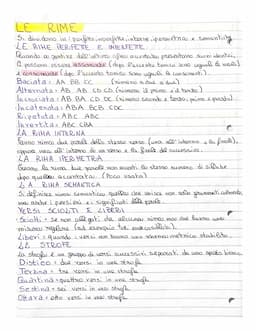 LE RIME
Si dividono in: perfette, imperfette, interne, ipermetra e semantica
LE RIME PERFETTE E IMPERFETTE
Quando la parte dell'ultimo presentano suoni identici,
E possono essere assonanze (dopo l'accento tonico sono uguali le vocali)
e consonanze (dopo l'accento tonico sono uguali le consonanti).
Baciata: AA BB CC (rimano a due a due)
Alternata: AB AB CD CD (rimano il primo e il terzo)
Incrociata: ABBA CDDC (rimano secondo e terzo, primo e quarto)
Incatenata: ABA BCB CDC
Ripetuta: ABC ABC
Invertita: ABC CBA
LA RIMA INTERNA
fanno rima due parole dello stesso verso (una all'interno e la finale),
oppure una all'interno di un verso e la finale del successivo.
LA RIMA IPERMETRA
le due parole non hanno lo stesso numero di sillabe
dopo quella accentata. (Poco usata)
LA RIMA SEMANTICA
Si definisce rima semantica quella che unisce non solo
ma anche i pensieri e i significati delle parole.
VERSI SCIOLTI E LIBERI
Sciolti: se non sono legati da alcuna rima ma che hanno una
misura regolare (ad esempio tre endecasillabi).
Liberi: quando i versi non hanno uno schema metrico stabilito.
LE STROFE
La strofa è un gruppo di versi successivi separati da uno spazio bianco
Distico = due versi in una strofa
Terzina = tre versi in una strofa
Quartina = quattro versi in una strofa
Sestina = sei versi in una strofa
Ottava = otto versi in una strofa